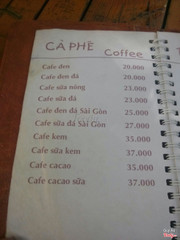 CÀ PHÊ Coffee
Cafe đen 20.000
Cafe đen đá 20.000
Cafe sữa nóng 23.000
Cafe sữa đá 23.000
Cafe đen đá Sài Gòn 25.000
Cafe sữa đá Sài Gòn 27.000
Cafe kem 35.000
Cafe sữa kem 37.000
Cafe cacao 35.000
Cafe cacao sữa 37.000